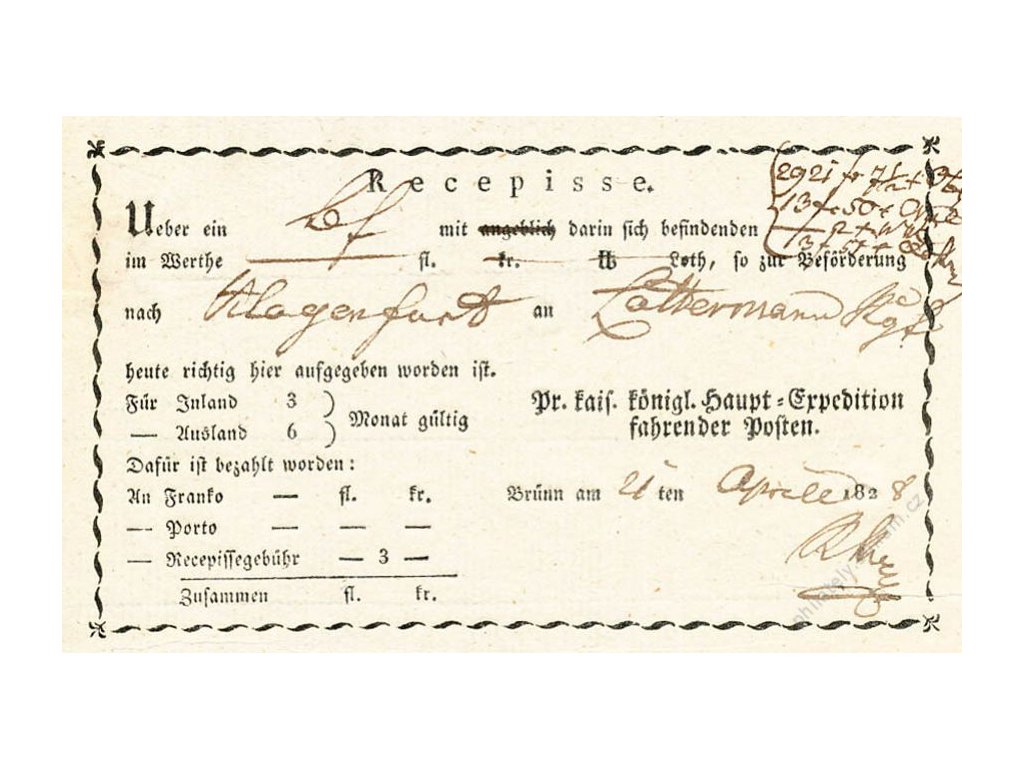 Recepisse.
Ueber ein mit angeblich darin sich befindenden
im Werthe — fl. kr. ℔ Loth, so zur Beförderung
nach Klagenfurt an Lattermann
heute richtig hier aufgegeben worden ist.
Für Inland 3
— Ausland 6
Monat gültig
Pr. kais. königl. Haupt-Expedition
fahrender Posten.
Dafür ist bezahlt worden:
An Franko — fl. kr.
— Porto — — —
— Recepissegebühr — 3 —
Zusammen fl. kr.
Brünn am 21 ten Aprill 1828